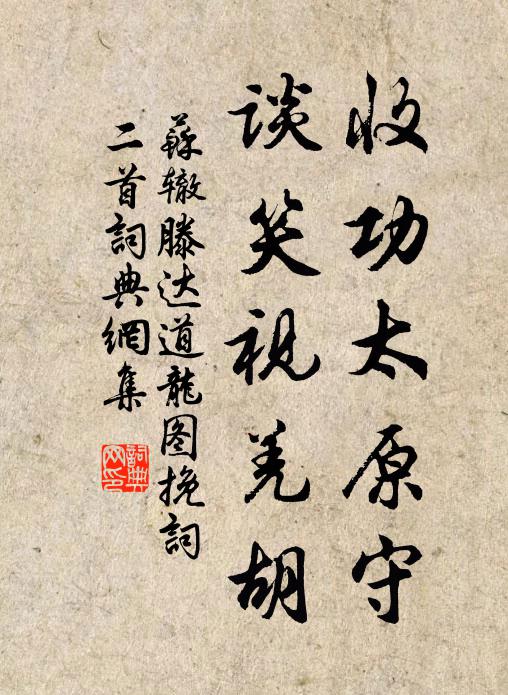 收功太原守
谈笑视羌胡
蘇辙滕达道龍图挽詞
二首詞典網集
詞典網印